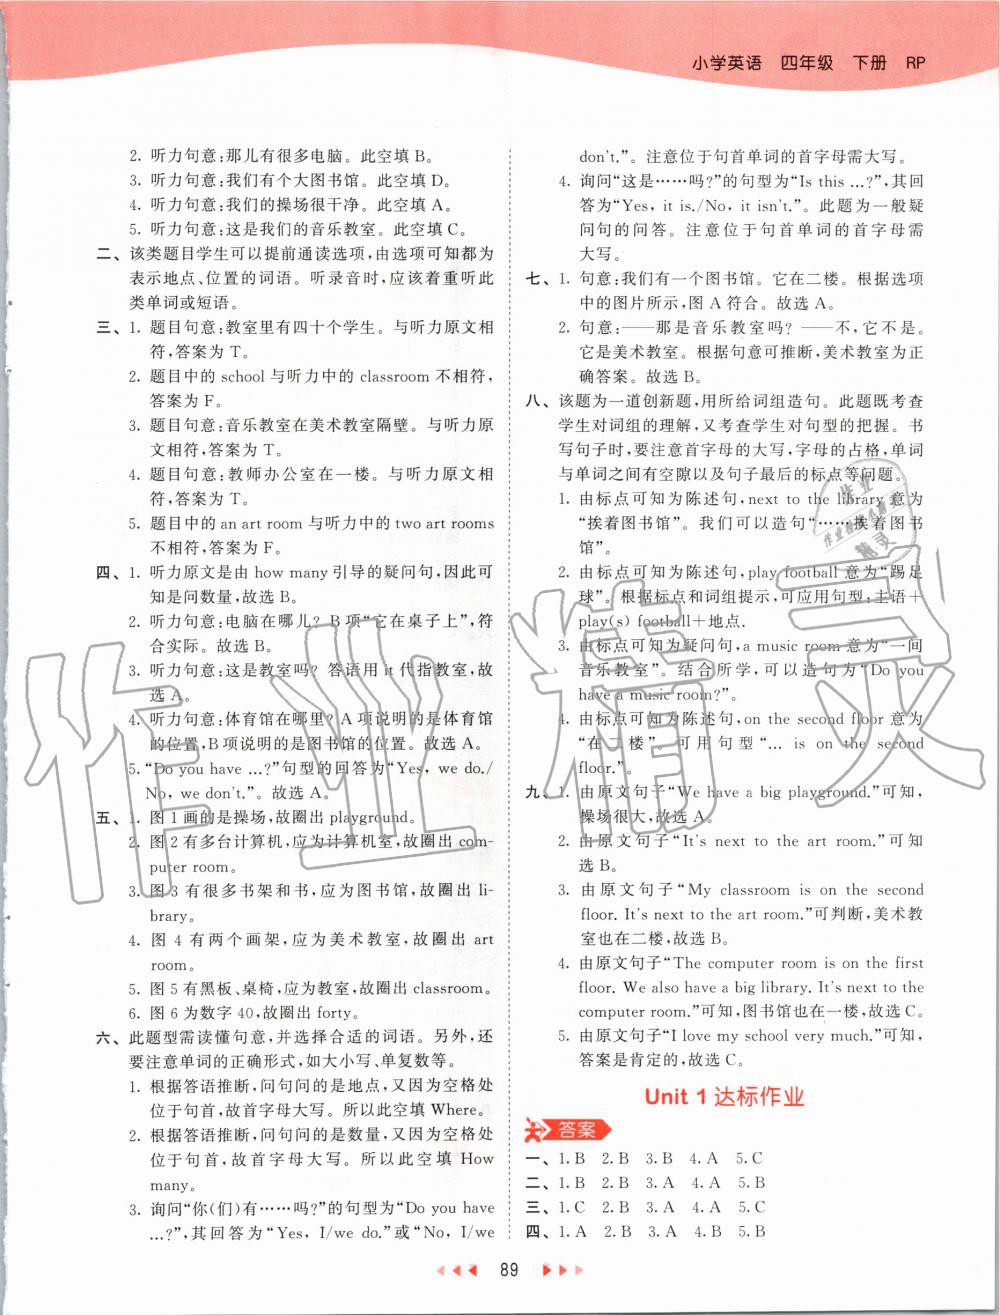 小学英语 四年级 下册 RP
2. 听力句意:那儿有很多电脑。此空填 B。
3. 听力句意:我们有个大图书馆。此空填 D。
4. 听力句意:我们的操场很干净。此空填 A。
5. 听力句意:这是我们的音乐教室。此空填 C。
二、该类题目学生可以提前通读选项,由选项可知都为
表示地点、位置的词语。听录音时,应该着重听此
类单词或短语。
三、1. 题目句意:教室里有四十个学生。与听力原文相
符,答案为 T。
2. 题目中的 school 与听力中的 classroom 不相符,
答案为 F。
3. 题目句意:音乐教室在美术教室隔壁。与听力原
文相符,答案为 T。
4. 题目句意:教师办公室在一楼。与听力原文相
符,答案为 T。
5. 题目中的 an art room 与听力中的 two art rooms
不相符,答案为 F。
四、1. 听力原文是由 how many 引导的疑问句,因此可
知是问数量,故选 B。
2. 听力句意:电脑在哪儿? B 项“它在桌子上”,符
合实际。故选 B。
3. 听力句意:这是教室吗? 答语用 it 代指教室,故
选 A。
4. 听力句意:体育馆在哪里? A 项说明的是体育馆
的位置,B 项说明的是图书馆的位置。故选 A。
5. “Do you have …?”句型的回答为“Yes, we do./
No, we don't.”。故选 A。
五、1. 图 1 画的是操场,故圈出 playground。
2. 图 2 有多台计算机,应为计算机室,故圈出 com-
puter room。
3. 图 3 有很多书架和书,应为图书馆,故圈出 li-
brary。
4. 图 4 有两个画架,应为美术教室,故圈出 art
room。
5. 图 5 有黑板、桌椅,应为教室,故圈出 classroom。
6. 图 6 为数字 40,故圈出 forty。
六、此题型需读懂句意,并选择合适的词语。另外,还
要注意单词的正确形式,如大小写、单复数等。
1. 根据答语推断,问句问的是地点,又因为空格处
位于句首,故首字母大写。所以此空填 Where。
2. 根据答语推断,问句问的是数量,又因为空格处
位于句首,故首字母大写。所以此空填 How
many。
3. 询问“你(们)有……吗?”的句型为“Do you have
…?”,其回答为“Yes, I/we do.”或“No, I/we
don't.”。注意位于句首单词的首字母需大写。
4. 询问“这是……吗?”的句型为“Is this …?”,其回
答为“Yes, it is./No, it isn't.”。此题为一般疑
问句的问答。注意位于句首单词的首字母需
大写。
七、1. 句意:我们有一个图书馆。它在二楼。根据选项
中的图片所示,图 A 符合。故选 A。
2. 句意:——那是音乐教室吗? ——不,它不是。
它是美术教室。根据句意可推断,美术教室为正
确答案。故选 B。
八、该题为一道创新题,用所给词组造句。此题既考查
学生对词组的理解,又考查学生对句型的把握。书
写句子时,要注意首字母的大写,字母的占格,单词
与单词之间有空隙以及句子最后的标点等问题。
1. 由标点可知为陈述句,next to the library 意为
“挨着图书馆”。我们可以造句“……挨着图书
馆”。
2. 由标点可知为陈述句,play football 意为“踢足
球”。根据标点和词组提示,可应用句型:主语+
play(s) football+地点.
3. 由标点可知为疑问句,a music room 意为“一间
音乐教室”。结合所学,可以造句为“Do you
have a music room?”。
4. 由标点可知为陈述句,on the second floor 意为
“在二楼”。可用句型“… is on the second
floor.”。
九、1. 由原文句子“We have a big playground.”可知,
操场很大,故选 A。
2. 由原文句子“It's next to the art room.”可知
选 B。
3. 由原文句子“My classroom is on the second
floor. It's next to the art room.”可判断,美术教
室也在二楼,故选 B。
4. 由原文句子“The computer room is on the first
floor. We also have a big library. It's next to the
computer room.”可知,图书馆也在一楼,故选 C。
5. 由原文句子“I love my school very much.”可知,
答案是肯定的,故选 C。
Unit 1 达标作业
答案
一、1. B 2. B 3. B 4. A 5. C
二、1. B 2. B 3. A 4. A 5. B
三、1. C 2. B 3. A 4. A 5. C
四、1. A 2. B 3. A 4. B 5. B
89
作业精灵